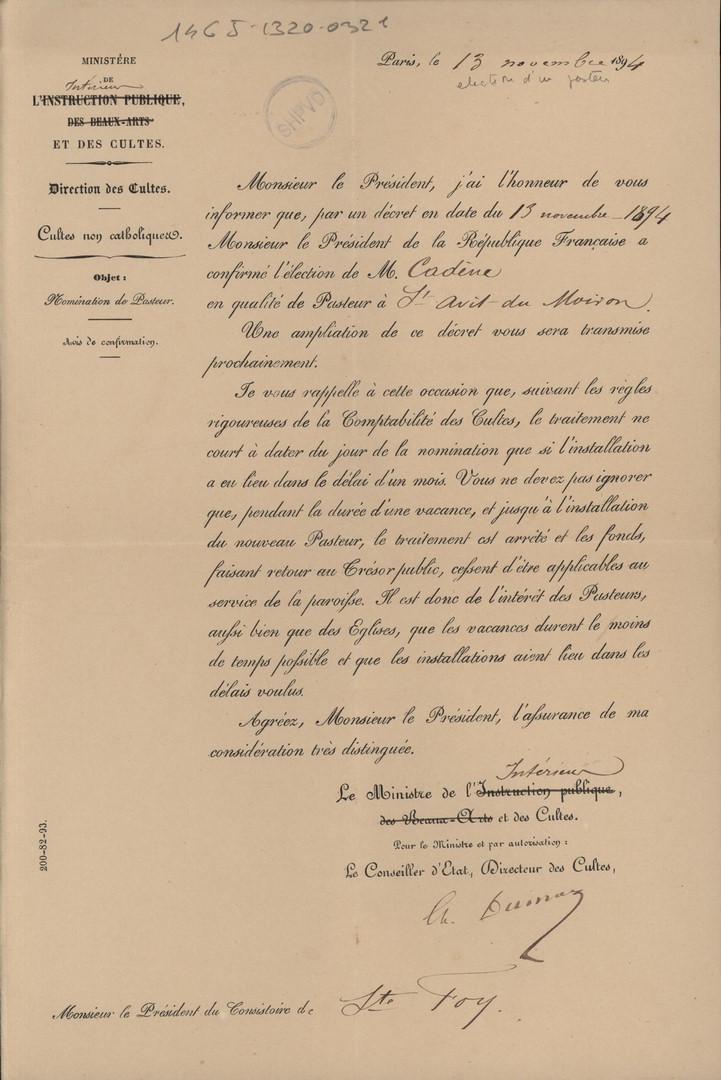 1465-1320-0321
MINISTÉRE
DE
Intérieur
L'INSTRUCTION PUBLIQUE,
DES BEAUX-ARTS
ET DES CULTES.
Direction des Cultes.
Cultes non catholiques.
Objet :
Nomination de Pasteur.
Avis de confirmation.
Paris, le 13 novembre 1894
election d'un pasteur
SHPVD
Monsieur le Président, j'ai l'honneur de vous
informer que, par un décret en date du 13 novembre 1894
Monsieur le Président de la République Française a
confirmé l'élection de M. Cadène
en qualité de Pasteur à St Avit du Moiron.
Une ampliation de ce décret vous sera transmise
prochainement.
Je vous rappelle à cette occasion que, suivant les règles
rigoureuses de la Comptabilité des Cultes, le traitement ne
court à dater du jour de la nomination que si l'installation
a eu lieu dans le délai d'un mois. Vous ne devez pas ignorer
que, pendant la durée d'une vacance, et jusqu'à l'installation
du nouveau Pasteur, le traitement est arrêté et les fonds,
faisant retour au Trésor public, cessent d'être applicables au
service de la paroisse. Il est donc de l'intérêt des Pasteurs,
aussi bien que des Eglises, que les vacances durent le moins
de temps possible et que les installations aient lieu dans les
délais voulus.
Agréez, Monsieur le Président, l'assurance de ma
considération très distinguée.
Intérieur
Le Ministre de l'Instruction publique,
des Beaux-Arts et des Cultes.
Pour le Ministre et par autorisation :
Le Conseiller d'Etat, Directeur des Cultes,
Ch. Dumay
200-82-93.
Monsieur le Président du Consistoire de Ste Foy.